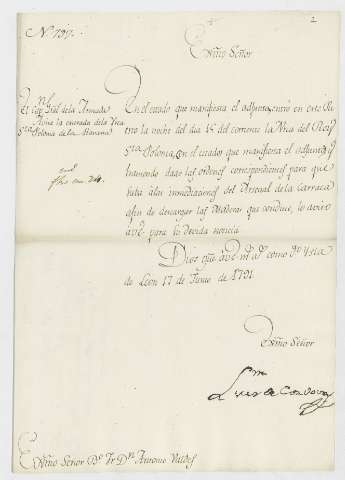 Nº 797.
2
Exmo Señor
El Cap.n Gral de la Armada
Avisa la entrada de la Urca
Sta Polonia de la Havana
En el estado que manifiesta el adjunto, entró en este Pu
erto la noche del dia 15 del corriente la Urca del Rey
Sta Polonia, con el estado que manifiesta el adjunto, y
haviendo dado las ordenes correspondientes para que
a las inmediaciones del Arsenal de la Carraca
a fin de descargar las Maderas que conduce, lo aviso
a V.E. para su devida noticia
Dios gue. a V.E. m.s a.s como deseo Ysla
de Leon 17 de Junio de 1791
Exmo Señor
Luis de Cordova
Exmo Señor Bº Fr Dn Antonio Valdes